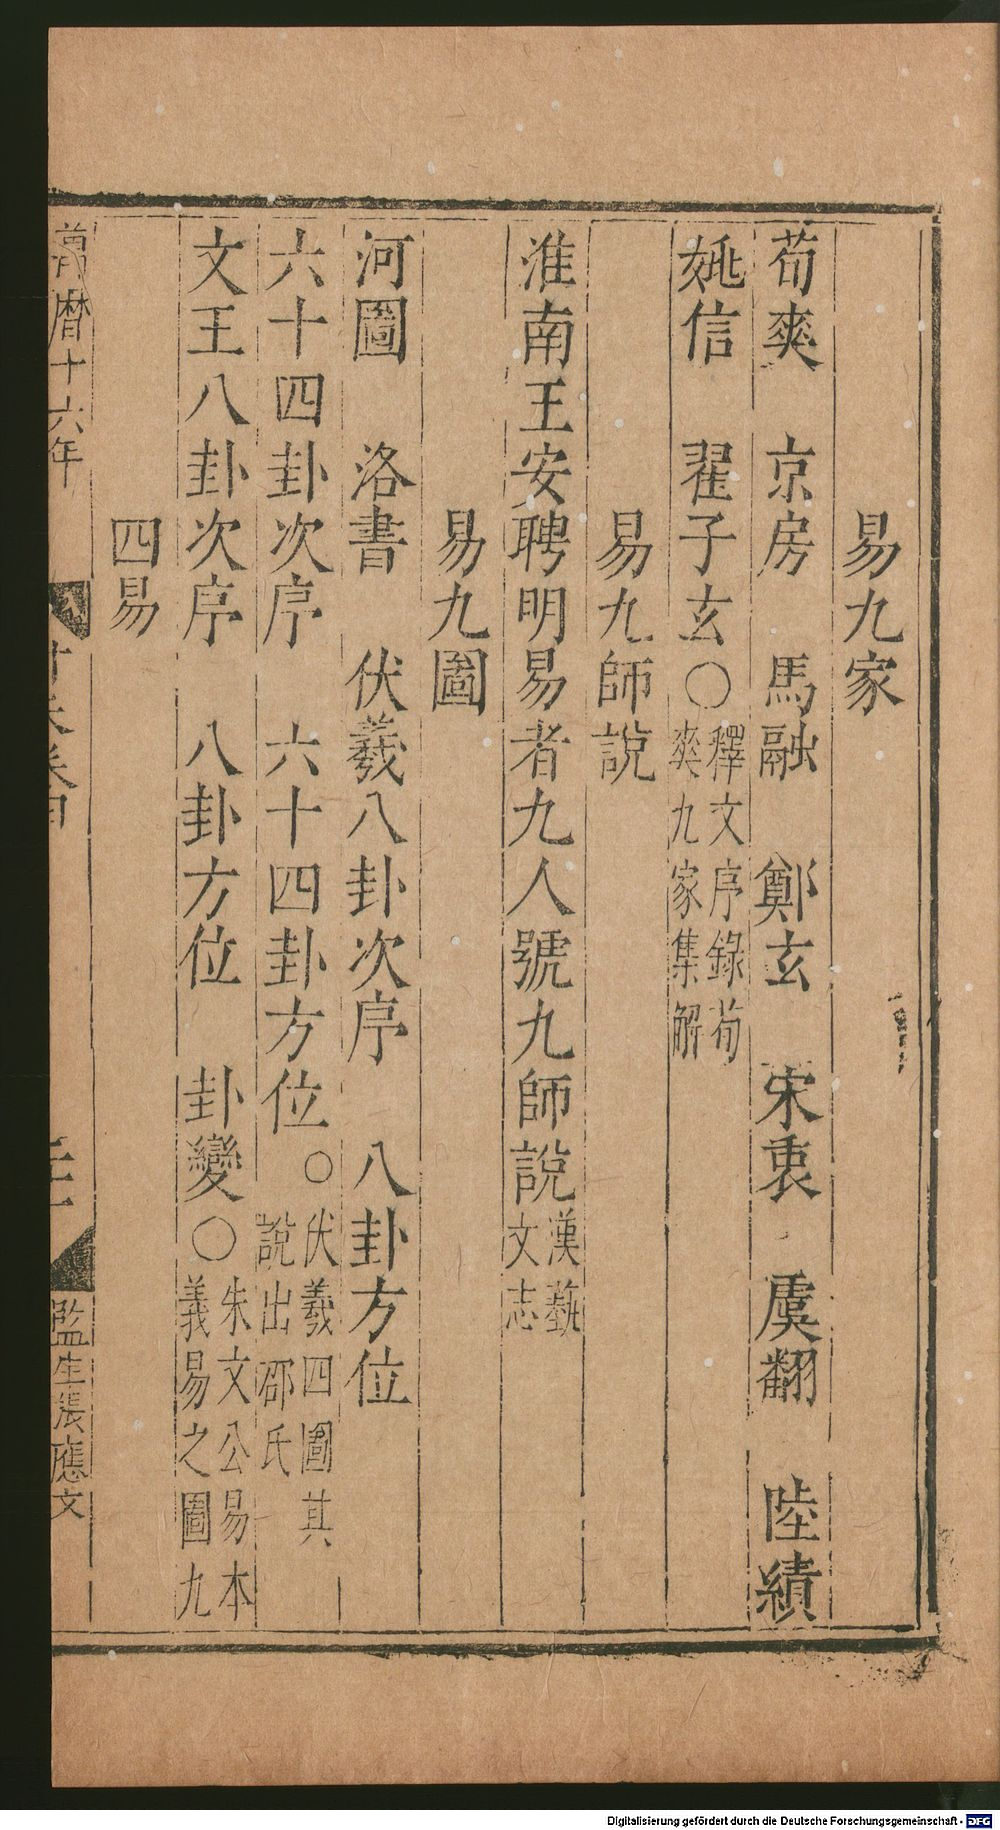 易九家
荀爽　京房　馬融　鄭玄　宋衷　虞翻　陸績
姚信　翟子玄○釋文序錄荀
爽九家集解
易九師說
淮南王安聘明易者九人號九師說漢藝
文志
易九圖
河圖　洛書　伏羲八卦次序　八卦方位
六十四卦次序　六十四卦方位○伏羲四圖其
說出邵氏
文王八卦次序　八卦方位　卦變○朱文公易本
義易之圖九
四易
萬曆十六年
監生張應文
Digitalisierung gefördert durch die Deutsche Forschungsgemeinschaft - DFG